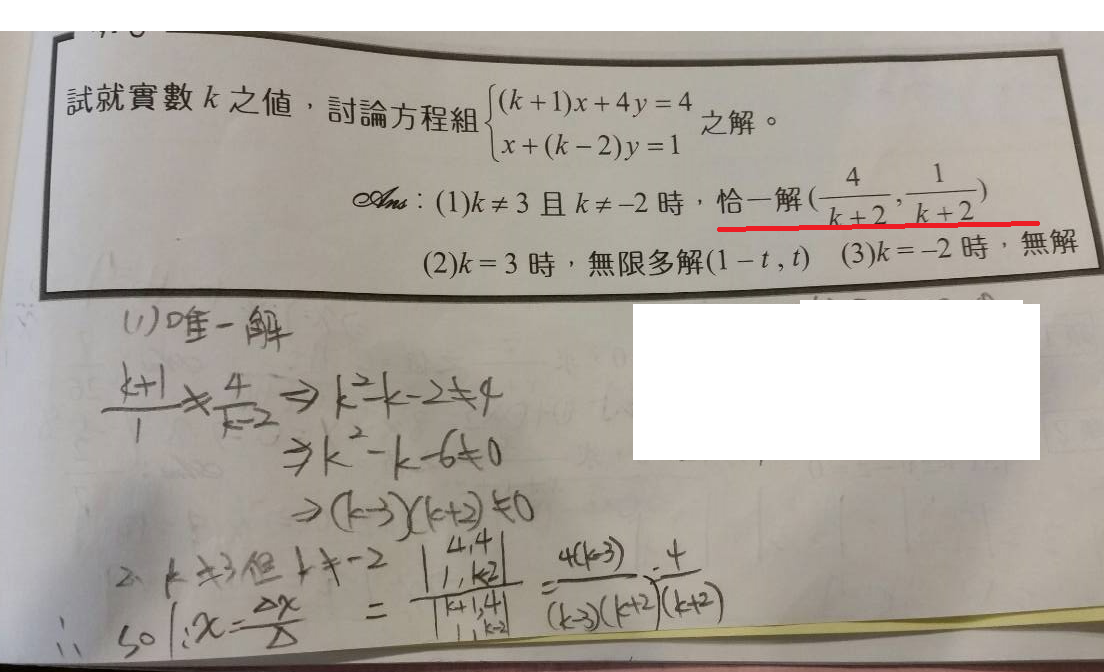 試就實數 k 之值，討論方程組 { (k+1)x+4y=4
x+(k-2)y=1 之解。
Ans：(1)k≠3 且 k≠-2 時，恰一解(4/(k+2), 1/(k+2))
(2)k=3 時，無限多解(1-t, t) (3)k=-2 時，無解
(1)唯一解
(k+1)/1 ≠ 4/(k-2) ⇒ k²-k-2≠4
⇒ k²-k-6≠0
⇒ (k-3)(k+2)≠0
k≠3但k≠-2
∴ sol: x = Δx/Δ = |4,4 1,k-2| / |k+1,4 1,k-2| = 4(k-3)/((k-3)(k+2)) = 4/(k+2)